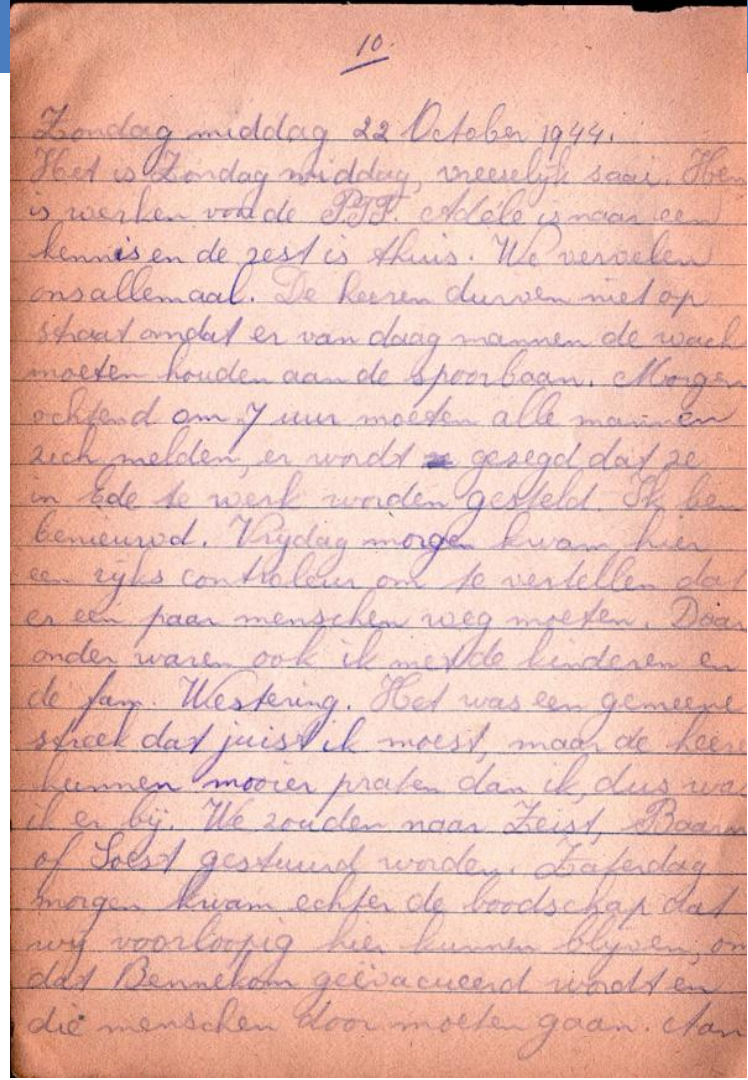 10.
Zondag middag 22 October 1944.
Het is Zondag middag, vreeselijk saai. Hen
is werken voor de PTT. Adèle is naar een
kennis en de rest is thuis. We vervelen
ons allemaal. De heeren durven niet op
straat omdat er van daag mannen de wach
moeten houden aan de spoorbaan. Morgen
ochtend om 7 uur moeten alle mannen
zich melden, er wordt gezegd dat ze
in Ede te werk worden gesteld. Ik ben
benieuwd. Vrijdag morgen kwam hier
een rijks controleur om te vertellen dat
er een paar menschen weg moeten. Daar
onder waren ook ik met de kinderen en
de fam. Westering. Het was een gemeene
streek dat juist ik moest, maar de heere
kunnen mooier praten dan ik, dus was
ik er bij. We zouden naar Zeist, Baarn
of Soest gestuurd worden. Zaterdag
morgen kwam echter de boodschap dat
wij voorloopig hier kunnen blijven, om
dat Bennekom geëvacueerd wordt en
die menschen door moeten gaan. Aan